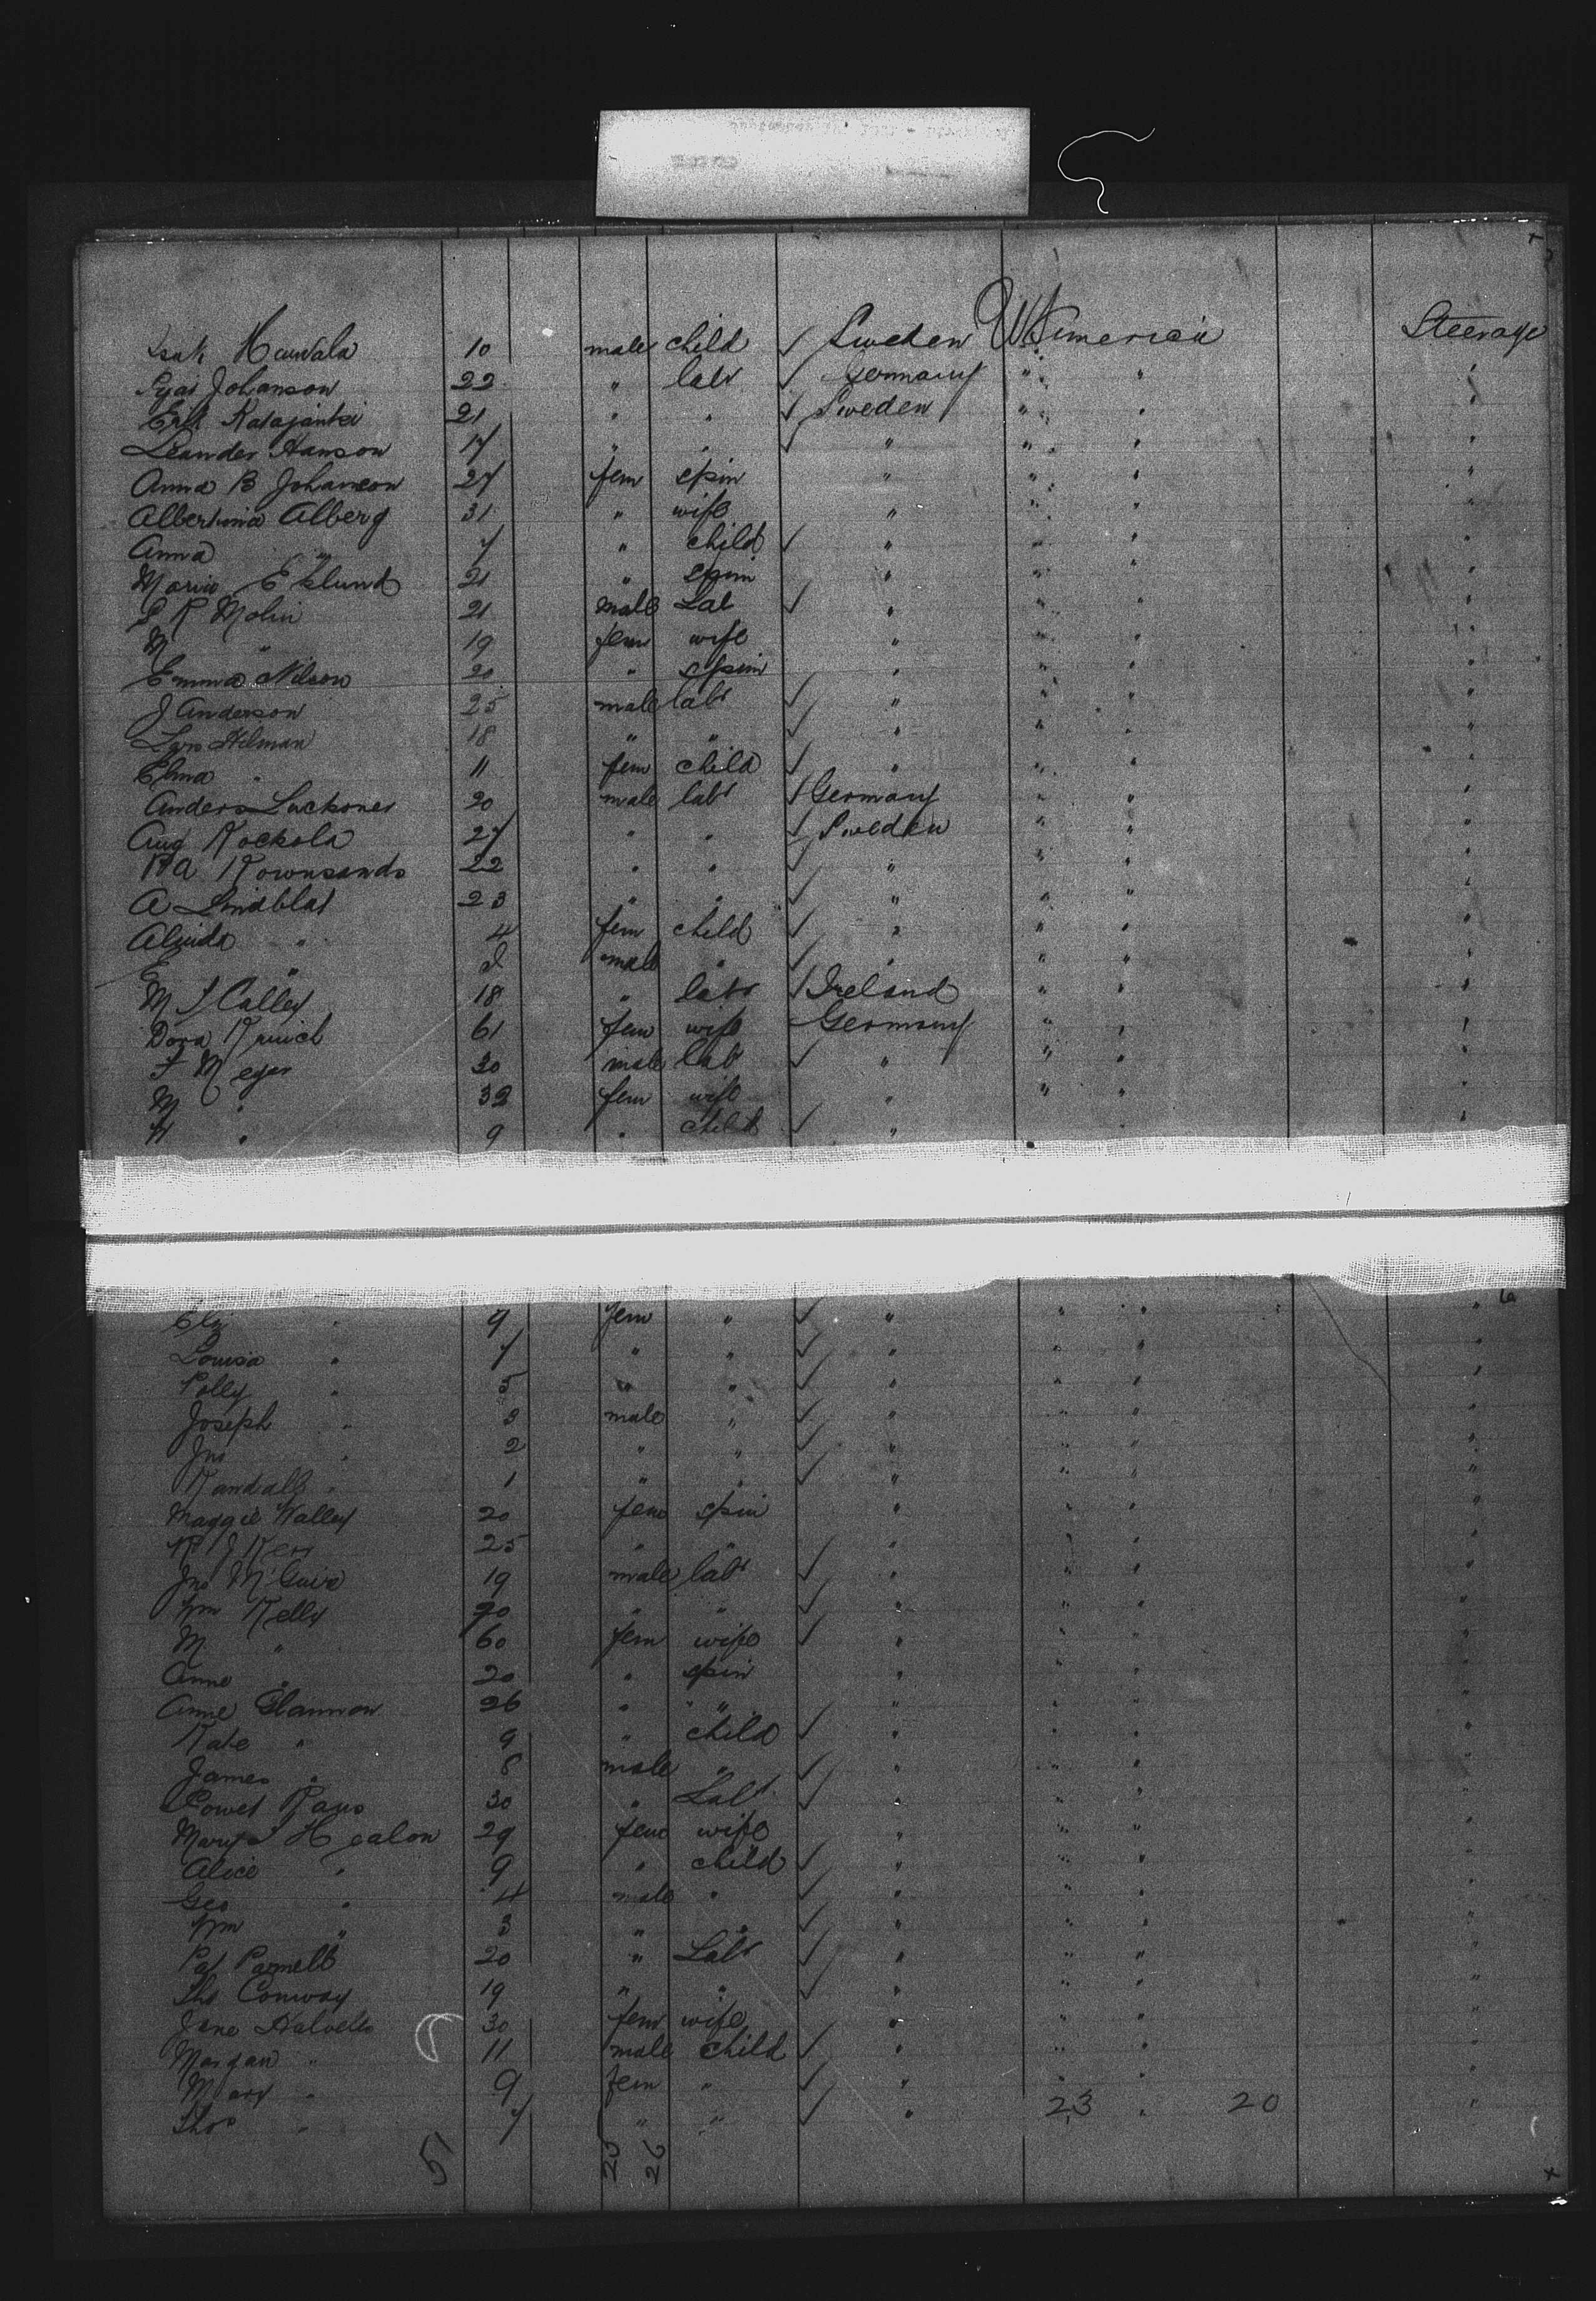 Isak Haurala 10 male child ✓ Sweden U.S. America Steerage
Johanson 22 " labr ✓ Germany " " "
Erik Katajanka 21 " " ✓ Sweden " " "
Leander Hanson 17 " " ✓ " " " "
Anna B Johanson 27 fem spin " " " "
Albertina Alberg 31 " wife " " " "
Anna " 7 " child ✓ " " " "
Maria Eklund 21 " spin " " " "
P K Molin 21 male Lab ✓ " " " "
M " 19 fem wife " " " "
Emma Nilson 20 " spin " " " "
J Anderson 25 male labr ✓ " " " "
Lars Hilman 18 " " ✓ " " " "
Elma " 11 fem child ✓ " " " "
Anders 20 male labr ✓ Germany " " "
Aug Kockola 27 " " ✓ Sweden " " "
22 " " ✓ " " " "
A Lindblat 23 " " ✓ " " " "
Alinda " 4 fem child ✓ " " " "
E " male " ✓ " " " "
M J Calley 18 " labr ✓ Ireland " " "
Dora 61 fem wife Germany " " "
F Meyer 30 male labr ✓ " " " "
M " 32 fem wife " " " "
H " 9 " child ✓ " " "
Eliz " 9 fem " ✓ " " " "
Louisa " 7 " " ✓ " " " "
Polly " 5 " " ✓ " " " "
Joseph " 3 male " ✓ " " " "
Jno " 2 " " ✓ " " " "
Randall " 1 " " ✓ " " " "
Maggie Walley 20 fem spin " " " "
25 " " " " " "
Jno McGuire 19 male labr ✓ " " " "
Wm Kelly " " ✓ " " " "
M " 60 fem wife ✓ " " " "
Anne " 20 " spin " " " "
Anne Glannon 26 " " " " " "
Kate " 9 " child ✓ " " " "
James " 8 male " ✓ " " " "
30 " Labr ✓ " " "
Mary Healon 29 fem wife " " " "
Alice " 9 " child ✓ " " " "
Geo " 4 male " ✓ " " " "
Wm " 3 " " ✓ " " " "
Pat Parnell 20 " Labr ✓ " " " "
Ths Conway 19 " " ✓ " " " "
Jane 30 fem wife " " " "
" 11 male child ✓ " " " "
Mary " 9 fem " ✓ " " " "
Thos " 7 " " ✓ " 23 " 20 "
5 26